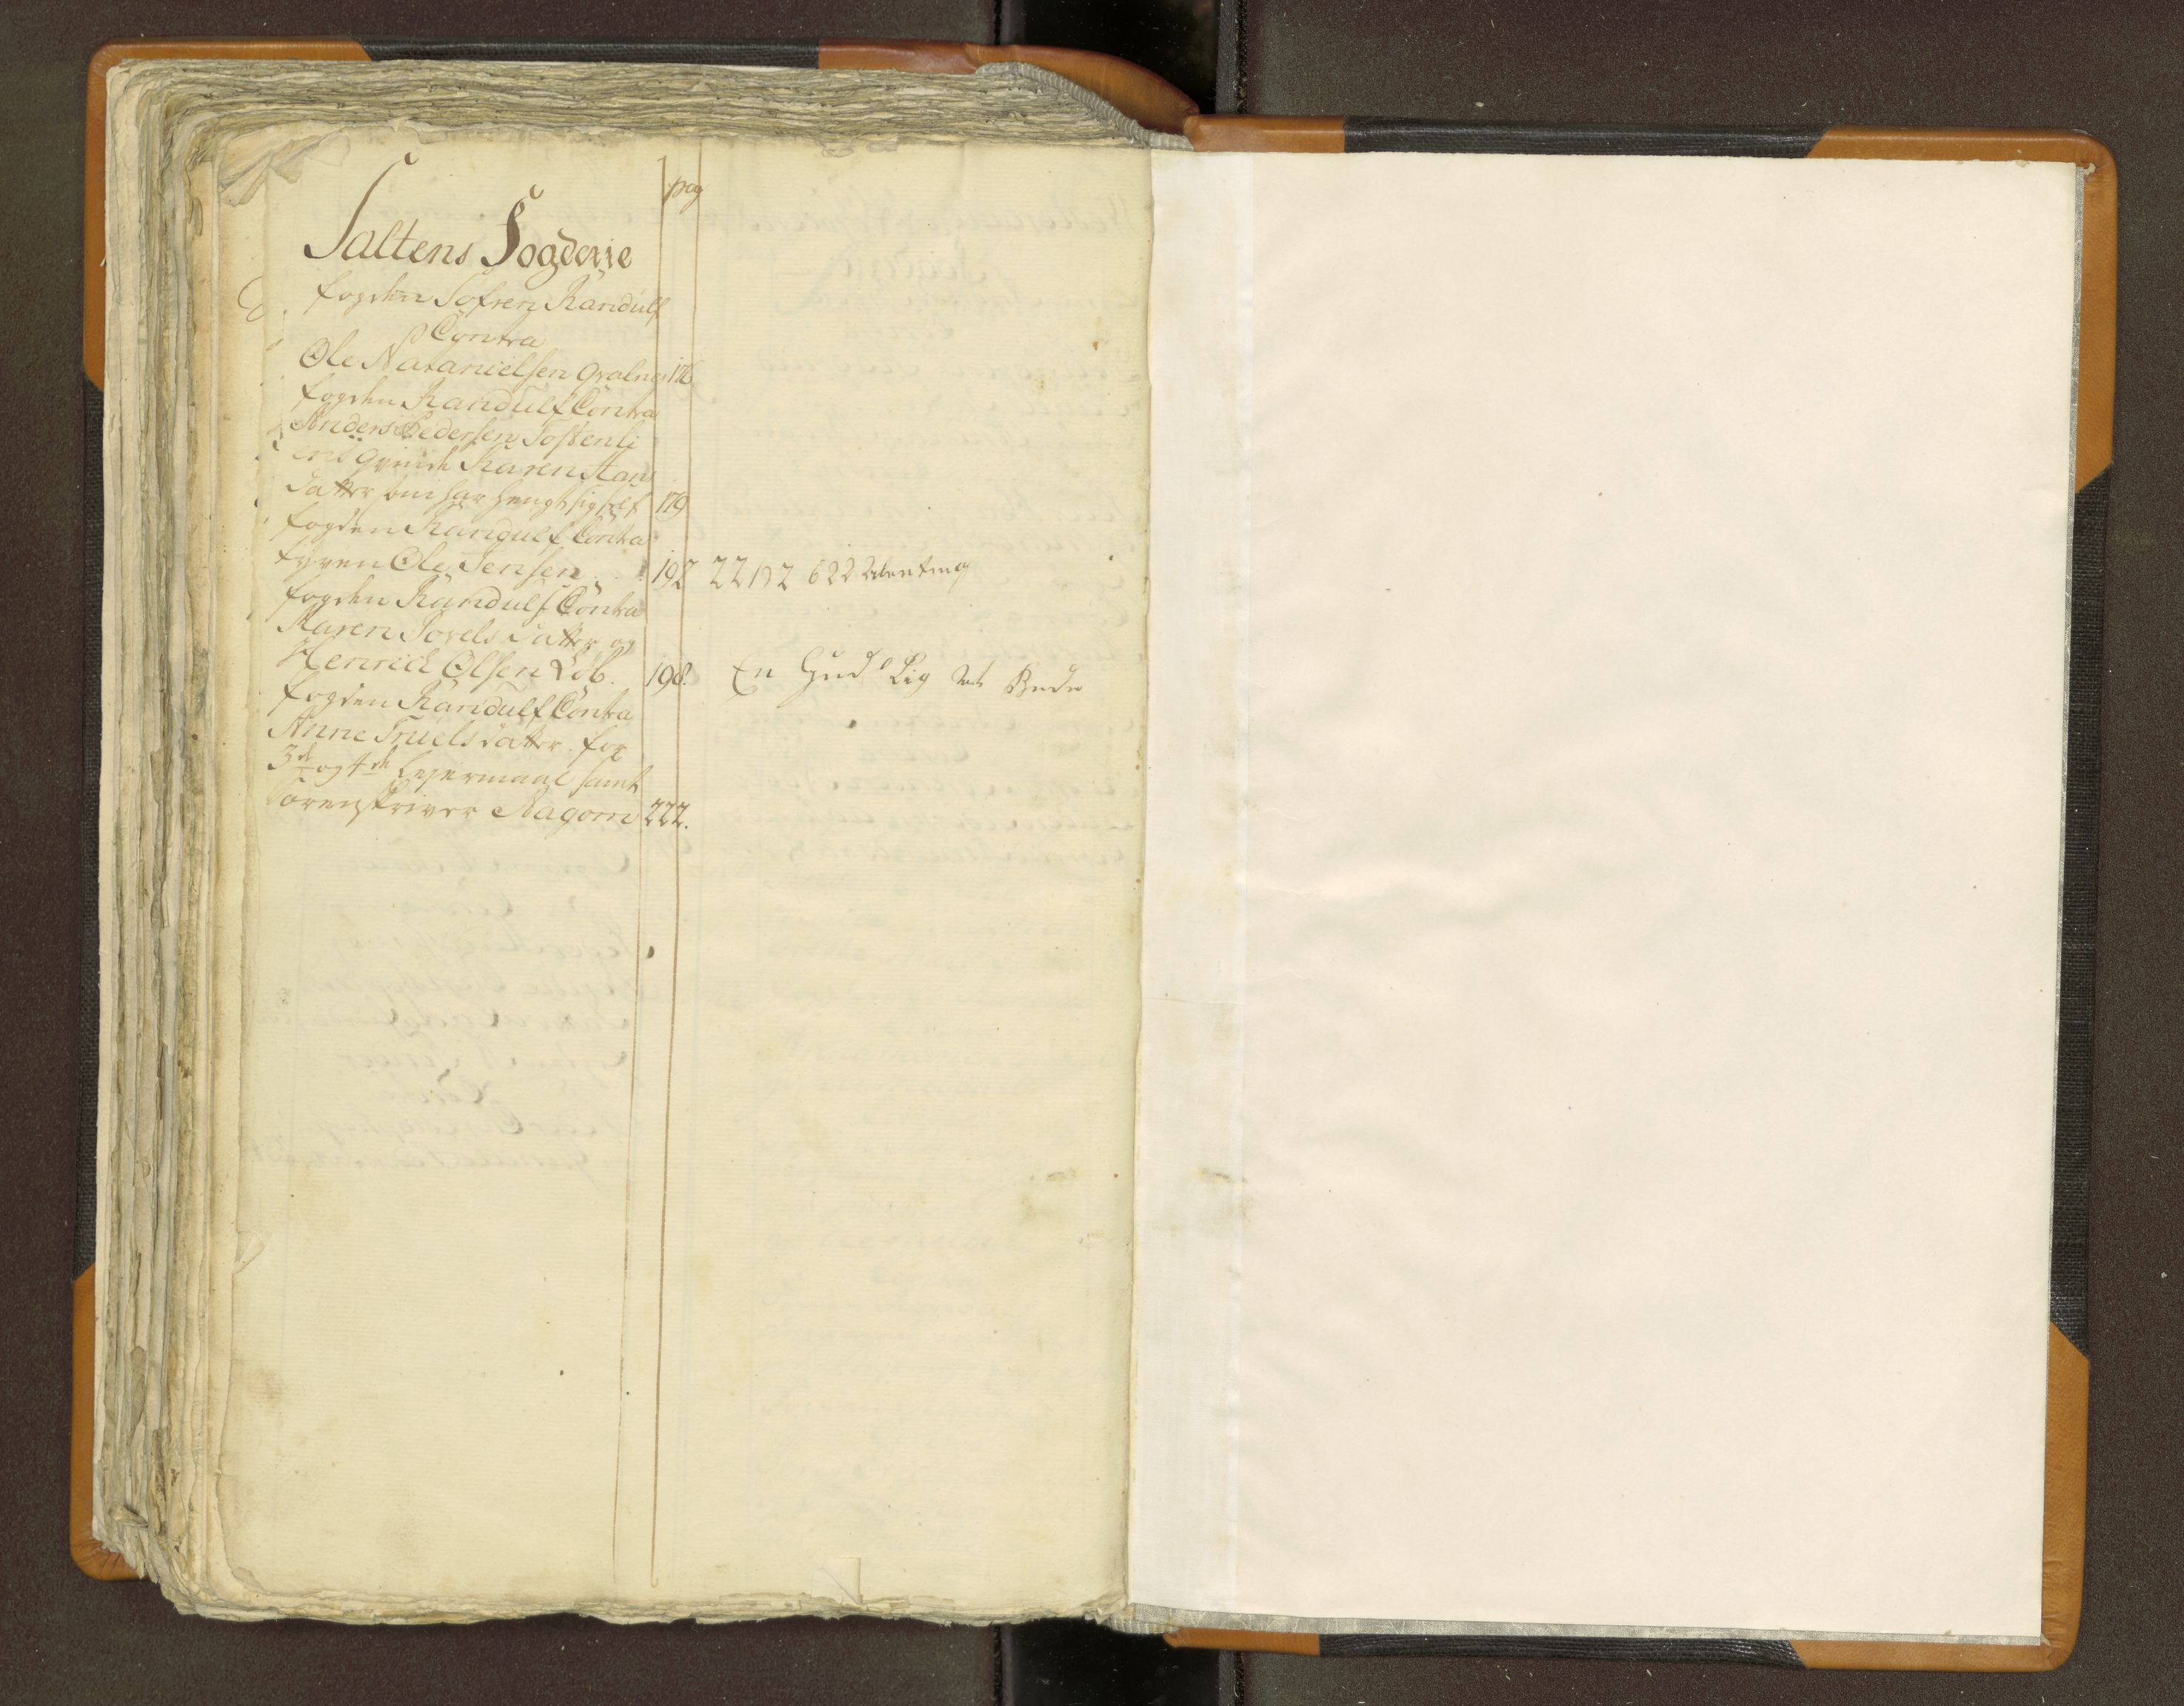 pag
Saltens Fogderie
fogden Søfren Randulf
Contra
Ole Nataniëlsen Qvalnes 176
fogden Randulf Contra
Anders Pedersen Tostenli
ens qvinde Karen Hans
datter som har hengt sig self 179
fogden Randulf Contra
tyven Ole Jensen 192 22192 622
fogden Randulf Contra
Karen Povels datter og
Henrich Olsen Løb. 198. En Gudelig Bede
fogden Randulf Contra
Anne Truels datter for
3de og 4de Lejermaal samt
Sorenskriver Nagorn 222.